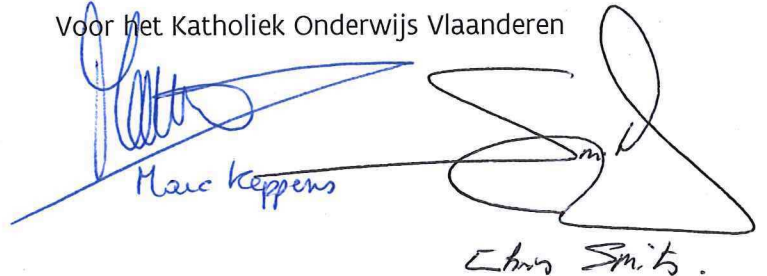 Voor het Katholiek Onderwijs Vlaanderen
Marc Keppens
Chris Smits.